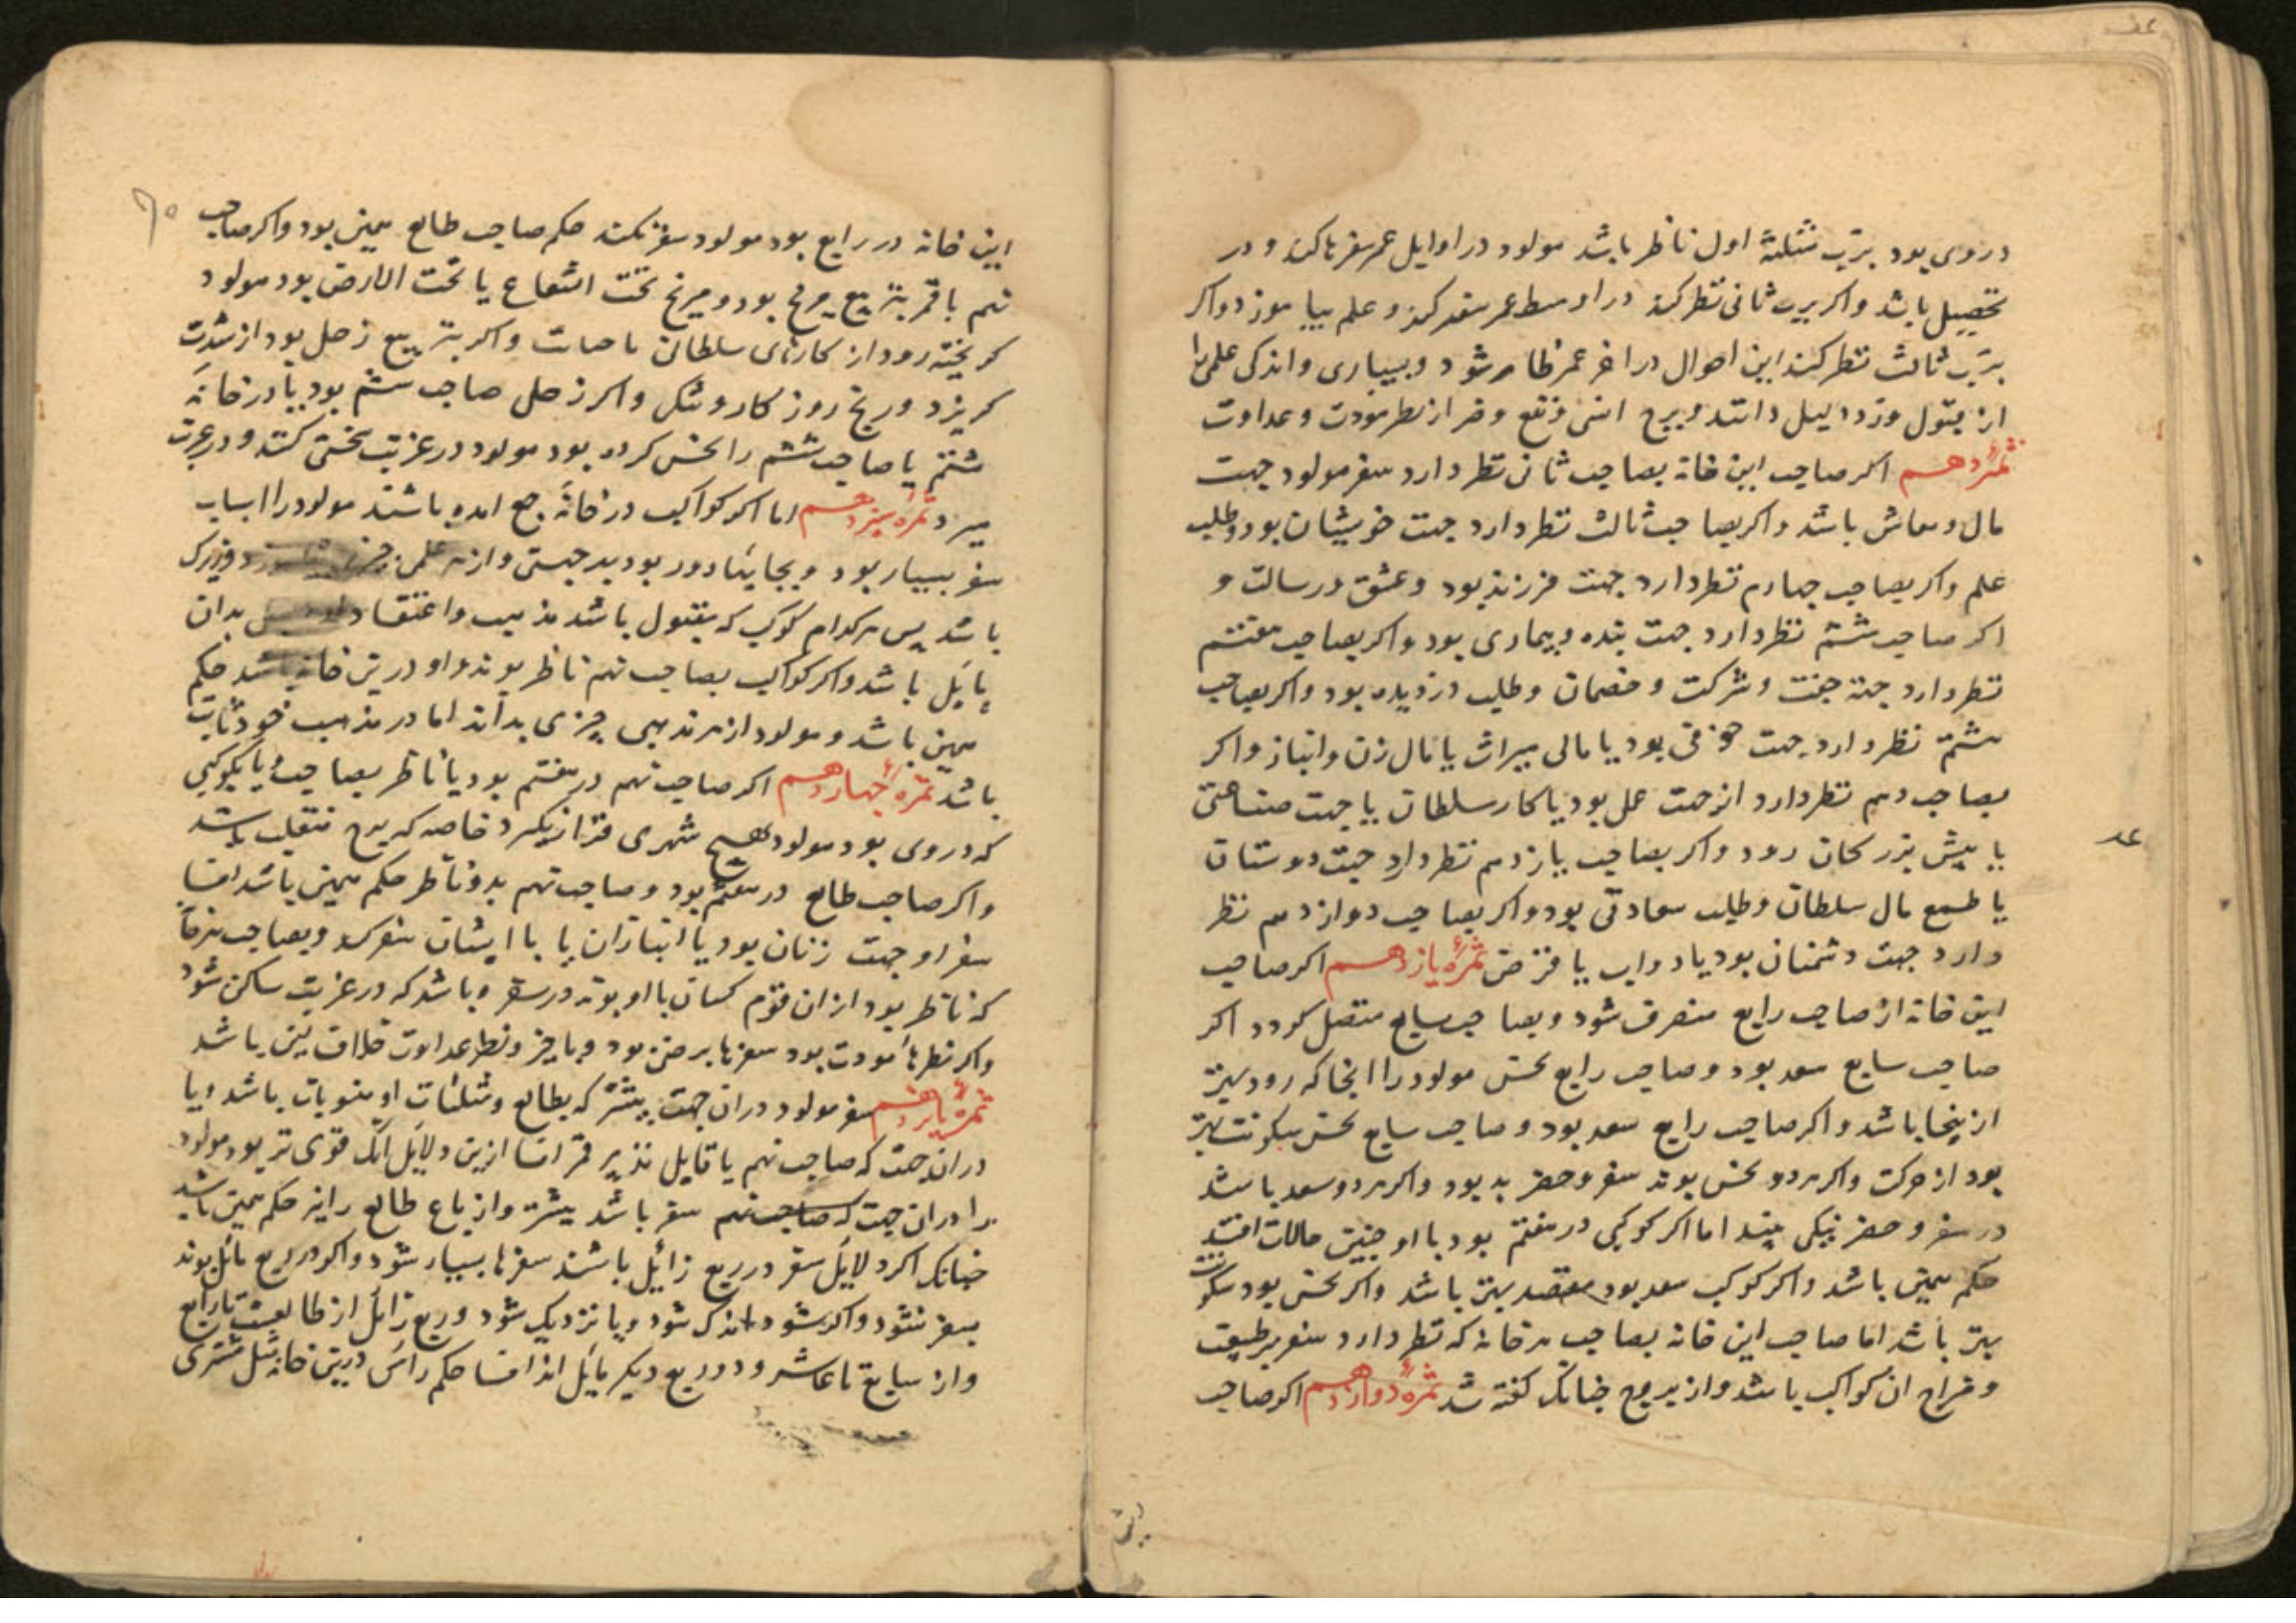 در وی بود برب مثلثهٔ اول ناظر باشد مولود در اوایل عمر سفرها کند و در
تحصیل باشد و اکر برب ثانی نظر کند در اوسط عمر سفر کند و علم بیاموزد و اکر
برب ثالث نظر کند این احوال در اخر عمر ظاهر شود و بسیاری و اندکی علمی را
از قبول ورد دلیل دانند و برج انسی و نفع و ضر از نظر مودت و عداوت
ثمرهٔ دهم اکر صاحب این خانه بصاحب ثانی نظر دارد سفر مولود جهت
مال و معاش باشد و اکر بصاحب ثالث نظر دارد جهت خویشان بود و طلب
علم و اکر بصاحب چهارم نظر دارد جهت فرزند بود و عشق و رسالت و
اکر صاحب ششم نظر دارد جهت بنده و بیماری بود و اکر بصاحب هفتم
نظر دارد جهة جفت و شرکت و خصمان و طلب دزدیده بود و اکر بصاحب
هشتم نظر دارد جهت خوفی بود یا مالی میراث یا مال زن و انباز و اکر
بصاحب دهم نظر دارد از جهت عمل بود یا کار سلطان یا جهت صناعتی
یا پیش بزرکان رود و اکر بصاحب یازدهم نظر دارد جهت دوستان
یا طمع مال سلطان و طلب سعادتی بود و اکر بصاحب دوازدهم نظر
دارد جهت دشمنان بود یا دواب یا قرض ثمرهٔ یازدهم اکر صاحب
این خانه از صاحب رابع منصرف شود و بصاحب سابع متصل کردد اکر
صاحب سابع سعد بود و صاحب رابع نحس مولود را انجا که رود بهتر
از ینجا باشد و اکر صاحب رابع سعد بود و صاحب سابع نحس سکونت بهتر
بود از حرکت و اکر هردو نحس بوند سفر و حضر بد بود و اکر هردو سعد باشد
در سفر و حضر نیکی بیند اما اکر کوکبی در هفتم بود با او چنین حالات افتد
حکم همین باشد و اکر کوکب سعد بود مقصد بهتر باشد و اکر نحس بود سکونت
بهتر باشد اما صاحب این خانه بصاحب هر خانه که نظر دارد سفر بر طبیعت
و مزاج ان کواکب باشد و از بروج چنانک کفته شد ثمرهٔ دوازدهم اکر صاحب
عد
این
۶۰
این خانه در رابع بود مولود سفر نکند حکم صاحب طالع همین بود و اکر صاحب
نهم با قمر بتربیع مریخ بود و مریخ تحت الشعاع یا تحت الارض بود مولود
کریخته رود از کارهای سلطان باصات و اکر بتربیع زحل بود از شدت
کریزد و رنج روز کار و شکل و اکر زحل صاحب ششم بود یا در خانهٔ
ششم یا صاحب ششم را نحس کرده بود مولود در غربت سختی کشد و در غربت
میرد ثمرهٔ سیزدهم اما اکر کواکب در خانهٔ جمع امده باشند مولود را اسباب
سفر بسیار بود و بجایها دور بود بد جهتی و از هر علمی چیزی و زیرک
باشد پس هرکدام کوکب که مقبول باشد مذهب و اعتقاد بدان
مایل باشد و اکر کواکب بصاحب نهم ناظر بوند و او درین خانه باشد حکم
همین باشد و مولود از هر مذهبی چیزی بداند اما در مذهب خود ثابت
باشد ثمرهٔ چهاردهم اکر صاحب نهم در هفتم بود یا ناظر بصاحبش یا بکوکبی
که در وی بود مولود بهیچ شهری قرار نکیرد خاصه که برج منقلب باشد
و اکر صاحب طالع در هفتم بود و صاحب نهم بدو ناظر حکم همین باشد اما
سفر او جهت زنان بود یا انبازان یا با ایشان سفر کند و بصاحب هر خانهٔ
که ناظر بود از ان قوم کسان با او بوند در سفر و باشد که در غربت ساکن شود
و اکر نظرها مودت بود سفرها بر ضن بود و با خیر و نظر عداوت خلاف این باشد
ثمرهٔ پانزدهم سفر مولود در ان جهت بیشتر که بطالع و مثلثات او منسوبات باشد و یا
در ان جهت که صاحب نهم یا قابل تدبیر قمر اما ازین دلایل انک قوی تر بود مولود
را در ان جهت که صاحب نهم سفر باشد بیشتر و از باع طالع را نیز حکم همین باشد
چنانک اکر دلایل سفر در ربع زایل باشند سفرها بسیار شود و اکر در ربع مایل بوند
سفر نشود و اکر شود اندک شود و یا نزدیک شود و ربع زایل از طالعست تا رابع
و از سابع تا عاشر و دو ربع دیکر مایل اند اما حکم راس درین خانه مثل مشتری